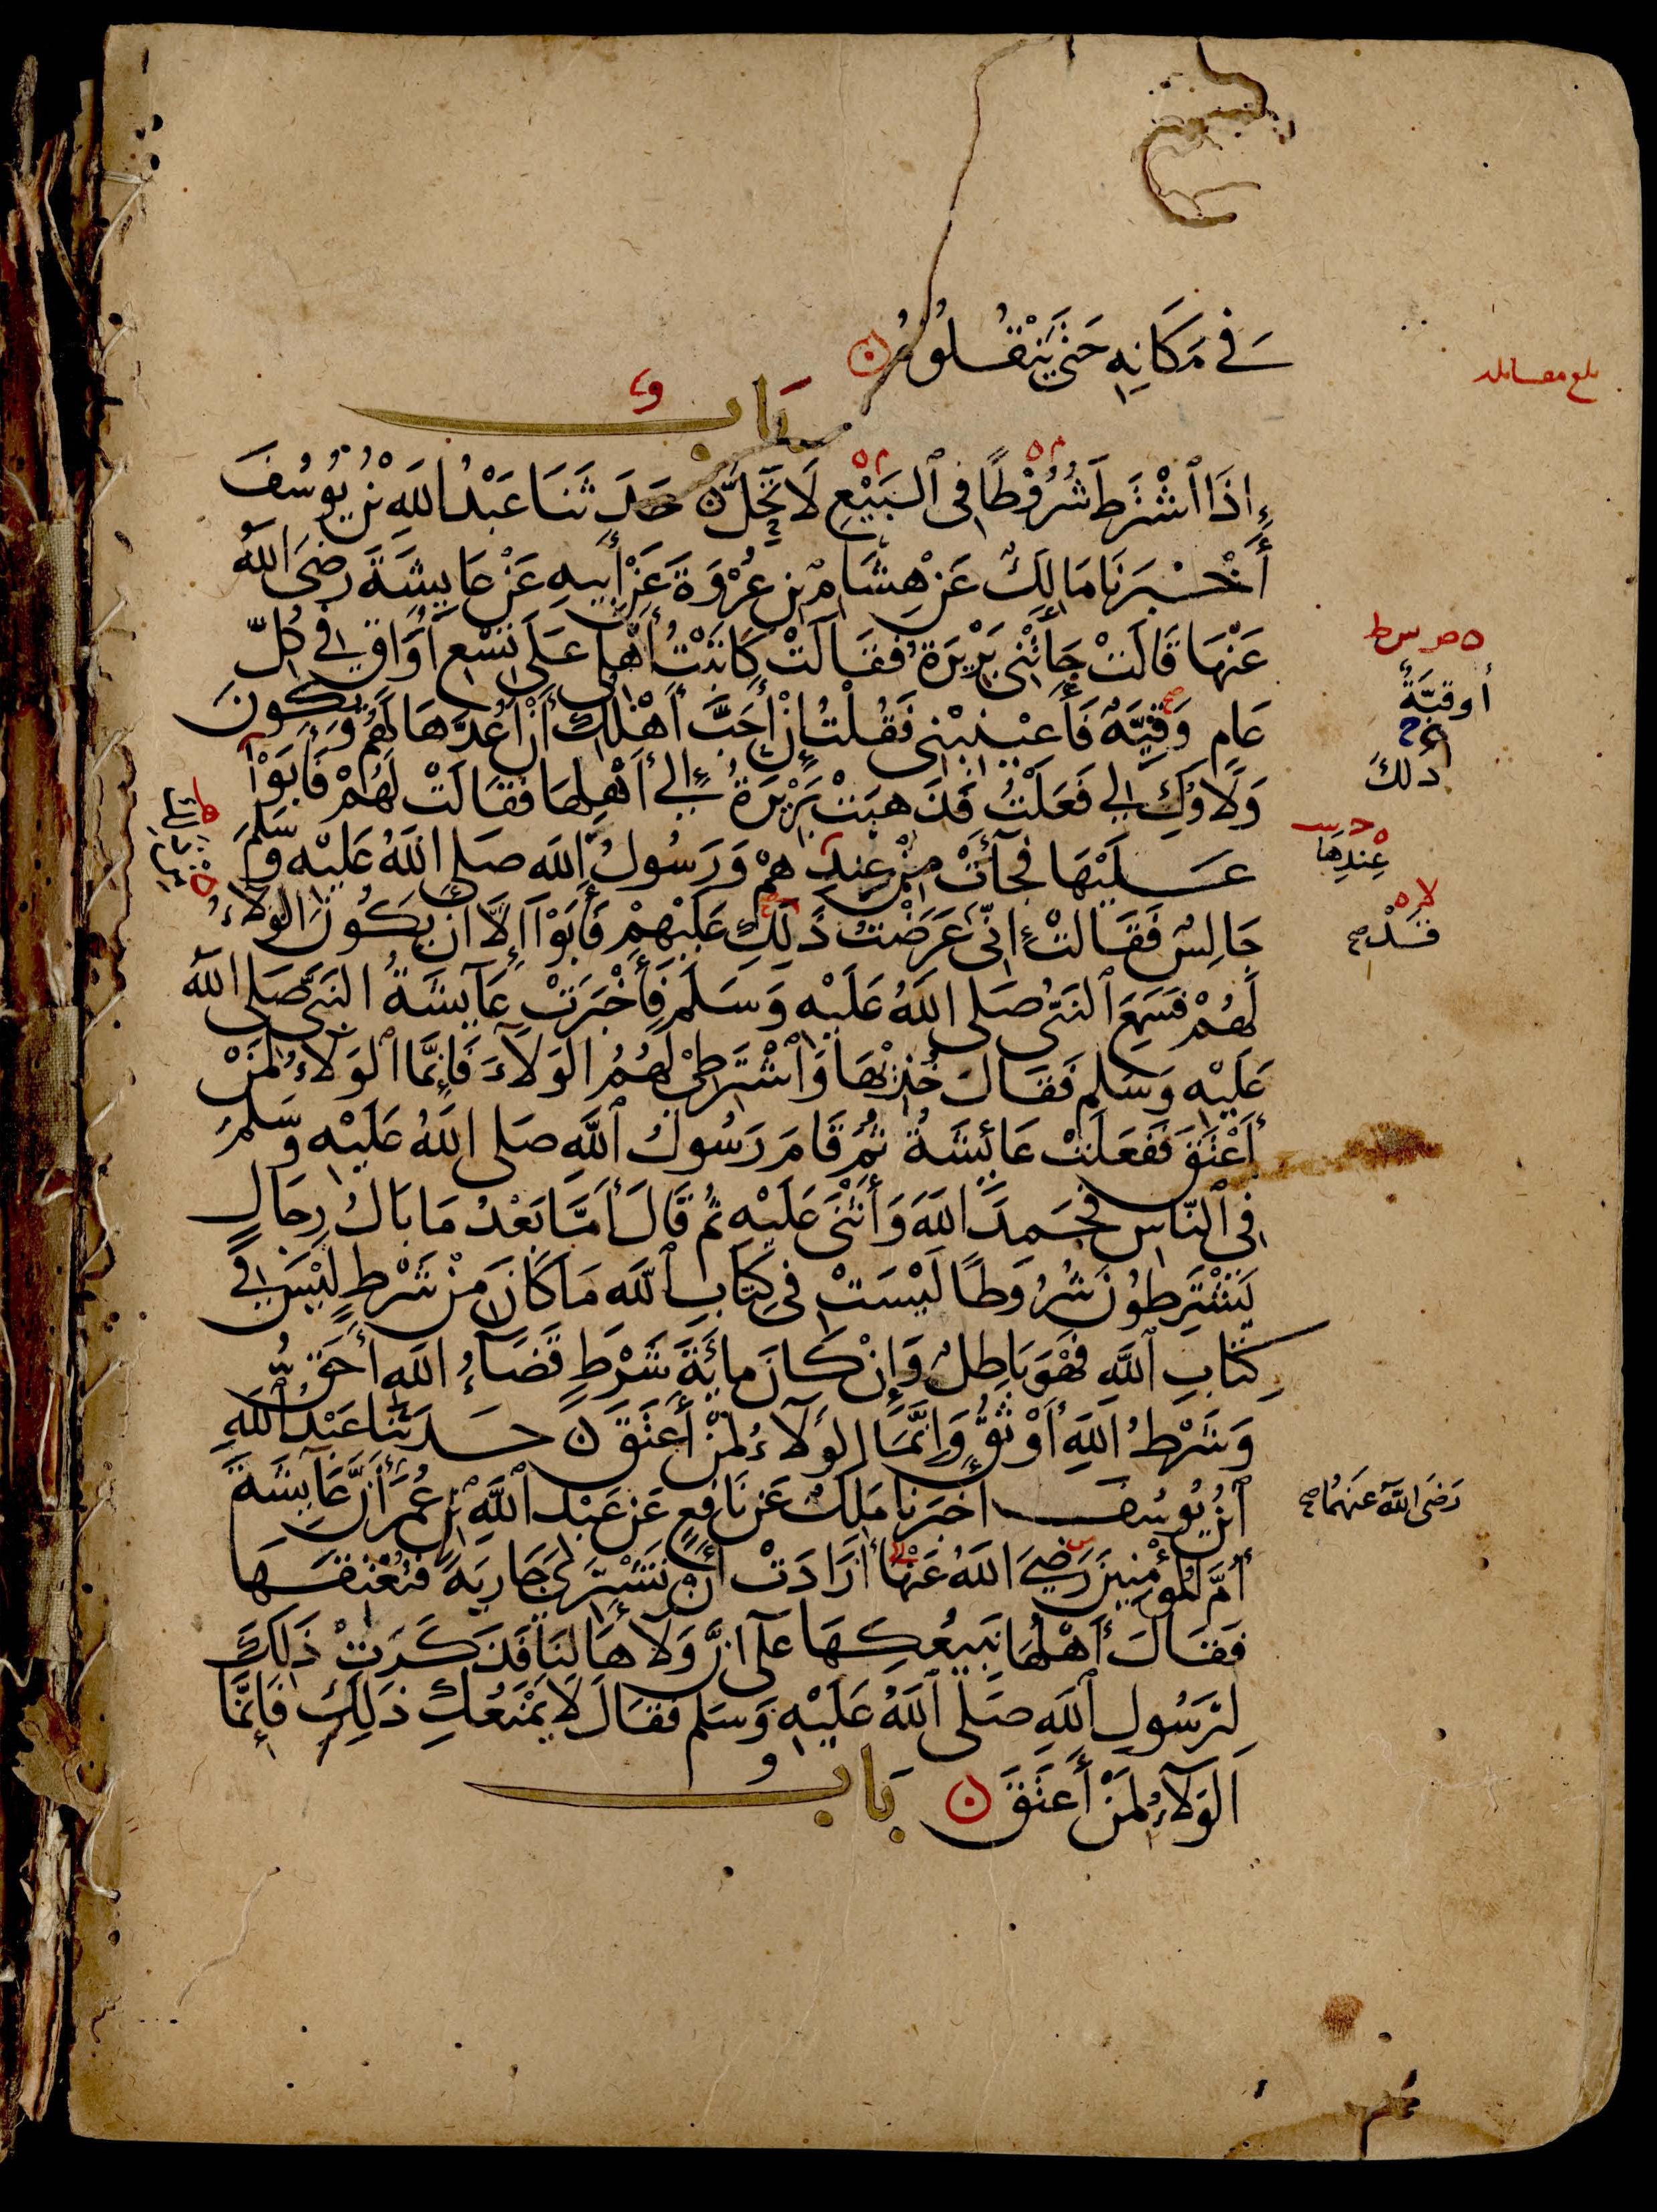 فِي مَكَانِهِ حَتَّى يَنْقُلُوهُ
بَاب
إِذَا اشْتَرَطَ شُرُوْطًا فِي الْبَيْعِ لَا تَحِلُّ حَدَّثَنَا عَبْدُ اللهِ بْنُ يُوْسُفَ
أَخْبَرَنَا مَالِكٌ عَنْ هِشَامِ بْنِ عُرْوَةَ عَنْ أَبِيهِ عَنْ عَايِشَةَ رَضِيَ اللهُ
عَنْهَا قَالَتْ جَاءَتْنِي بَرِيْرَةُ فَقَالَتْ كَاتَبْتُ أَهْلِي عَلَى تِسْعِ أَوَاقٍ فِي كُلِّ
عَامٍ وَقِيَّةٌ فَأَعِيْنِيْنِي فَقُلْتُ إِنْ أَحَبَّ أَهْلُكِ أَنْ أَعُدَّهَا لَهُمْ وَيَكُونَ
وَلَاؤُكِ لِي فَعَلْتُ فَذَهَبَتْ بَرِيْرَةُ إِلَى أَهْلِهَا فَقَالَتْ لَهُمْ فَأَبَوْا
عَلَيْهَا فَجَاءَتْ مِنْ عِنْدِهِمْ وَرَسُولُ اللهِ صَلَّى اللهُ عَلَيْهِ وَسَلَّمَ
جَالِسٌ فَقَالَتْ إِنِّي عَرَضْتُ ذَلِكِ عَلَيْهِمْ فَأَبَوْا إِلَّا أَنْ يَكُونَ الْوَلَاءُ
لَهُمْ فَسَمِعَ النَّبِيُّ صَلَّى اللهُ عَلَيْهِ وَسَلَّمَ فَأَخْبَرَتْ عَايِشَةُ النَّبِيَّ صَلَّى اللهُ
عَلَيْهِ وَسَلَّمَ فَقَالَ خُذِيْهَا وَاشْتَرِطِيْ لَهُمُ الْوَلَاءَ فَإِنَّمَا الْوَلَاءُ لِمَنْ
أَعْتَقَ فَفَعَلَتْ عَائِشَةُ ثُمَّ قَامَ رَسُولُ اللهِ صَلَّى اللهُ عَلَيْهِ وَسَلَّمَ
فِي النَّاسِ فَحَمِدَ اللهَ وَأَثْنَى عَلَيْهِ ثُمَّ قَالَ أَمَّا بَعْدُ مَا بَالُ رِجَالٍ
يَشْتَرِطُوْنَ شُرُوطًا لَيْسَتْ فِي كِتَابِ اللهِ مَا كَانَ مِنْ شَرْطٍ لَيْسَ فِي
كِتَابِ اللهِ فَهْوَ بَاطِلٌ وَإِنْ كَانَ مِائَةَ شَرْطٍ قَضَاءُ اللهِ أَحَقُّ
وَشَرْطُ اللهِ أَوْثَقُ وَإِنَّمَا الْوَلَاءُ لِمَنْ أَعْتَقَ حَدَّثَنَا عَبْدُ اللهِ
ابْنُ يُوسُفَ أَخْبَرَنَا مَلِكٌ عَنْ نَافِعٍ عَنْ عَبْدِ اللهِ بْنِ عُمَرَ أَنَّ عَايِشَةَ
أُمَّ الْمُؤْمِنِيْنَ رَضِيَ اللهُ عَنْهَا أَرَادَتْ أَنْ تَشْتَرِيَ جَارِيَةً فَتُعْتِقَهَا
فَقَالَ أَهْلُهَا نَبِيعُكِهَا عَلَى أَنَّ وَلَاءَهَا لَنَا فَذَكَرَتْ ذَلِكَ
لِرَسُولِ اللهِ صَلَّى اللهُ عَلَيْهِ وَسَلَّمَ فَقَالَ لَا يَمْنَعُكِ ذَلِكِ فَإِنَّمَا
الْوَلَاءُ لِمَنْ أَعْتَقَ بَاب
بلغ مقابلة
أوقيَّةٌ
ذلك
عِنْدِهَا
قَدْ صح
رَضِيَ اللهُ عَنهُمَا صح